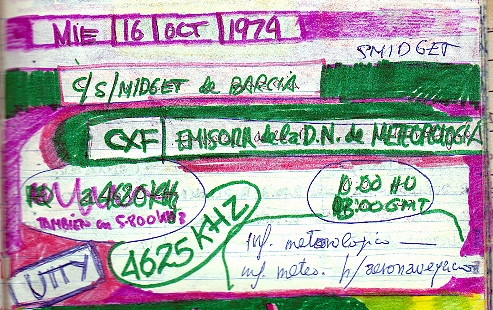 MIE 16 OCT 1974
SMIDGET
C/S/MIDGET de BARCIA
CXF EMISORA de la D.N. de METEOROLOGIA
a 4620 KHz
TAMBIEN en 5800 KHz
10:00 HU
13:00 GMT
4625 KHZ
UTTY
inf. meteorologico
inf. meteo. p/aeronavegacion